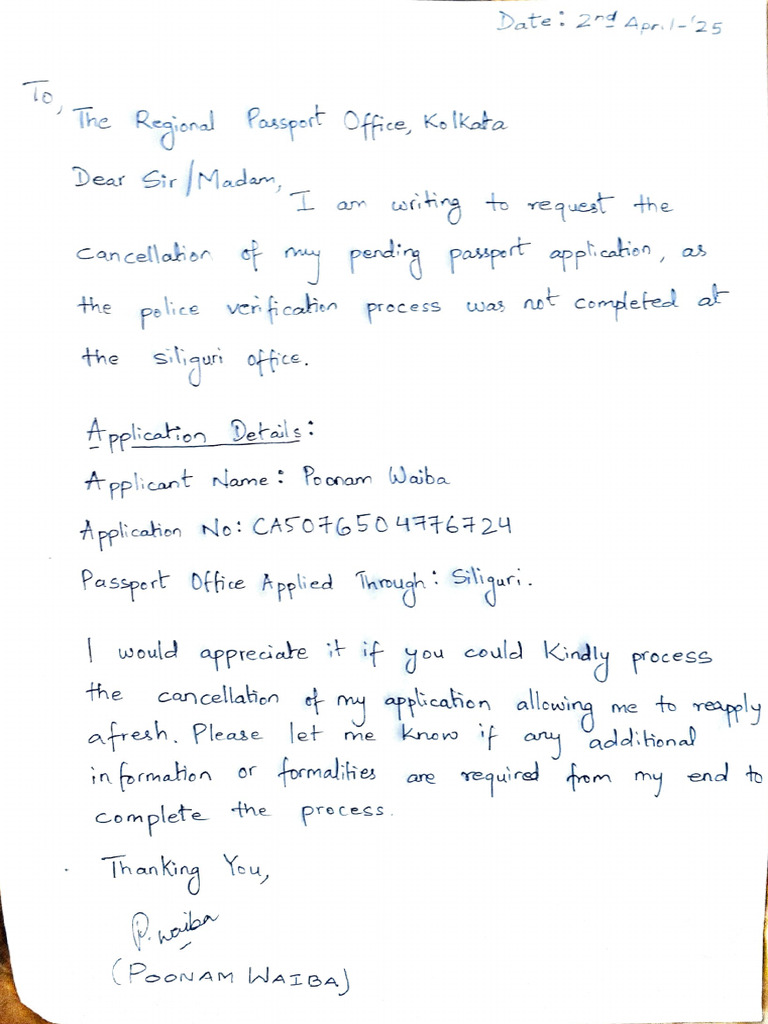 Date: 2nd April-'25
To,
The Regional Passport Office, Kolkata
Dear Sir/Madam,
I am writing to request the
cancellation of my pending passport application, as
the police verification process was not completed at
the siliguri office.
Application Details:
Applicant Name: Poonam Waiba
Application No: CA5076504776724
Passport Office Applied Through: Siliguri.
I would appreciate it if you could Kindly process
the cancellation of my application allowing me to reapply
afresh. Please let me know if any additional
information or formalities are required from my end to
complete the process.
Thanking You,
P. Waiba
(POONAM WAIBA)